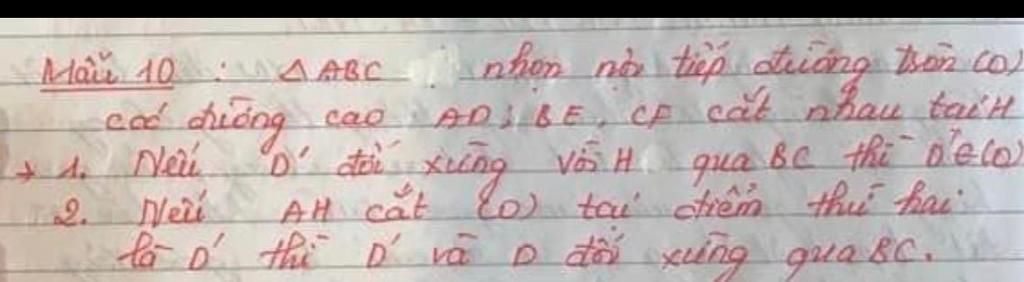 Mẫu 10 : △ ABC nhọn nội tiếp đường tròn (O)
các đường cao AD; BE, CF cắt nhau tại H
→ 1. Nếu D' đối xứng với H qua BC thì D' ∈ (O)
2. Nếu AH cắt (O) tại điểm thứ hai
là D' thì D' và D đối xứng qua BC.